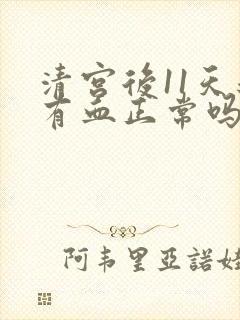 清宫後11天
有血正常吗
阿韦里亞諾娃